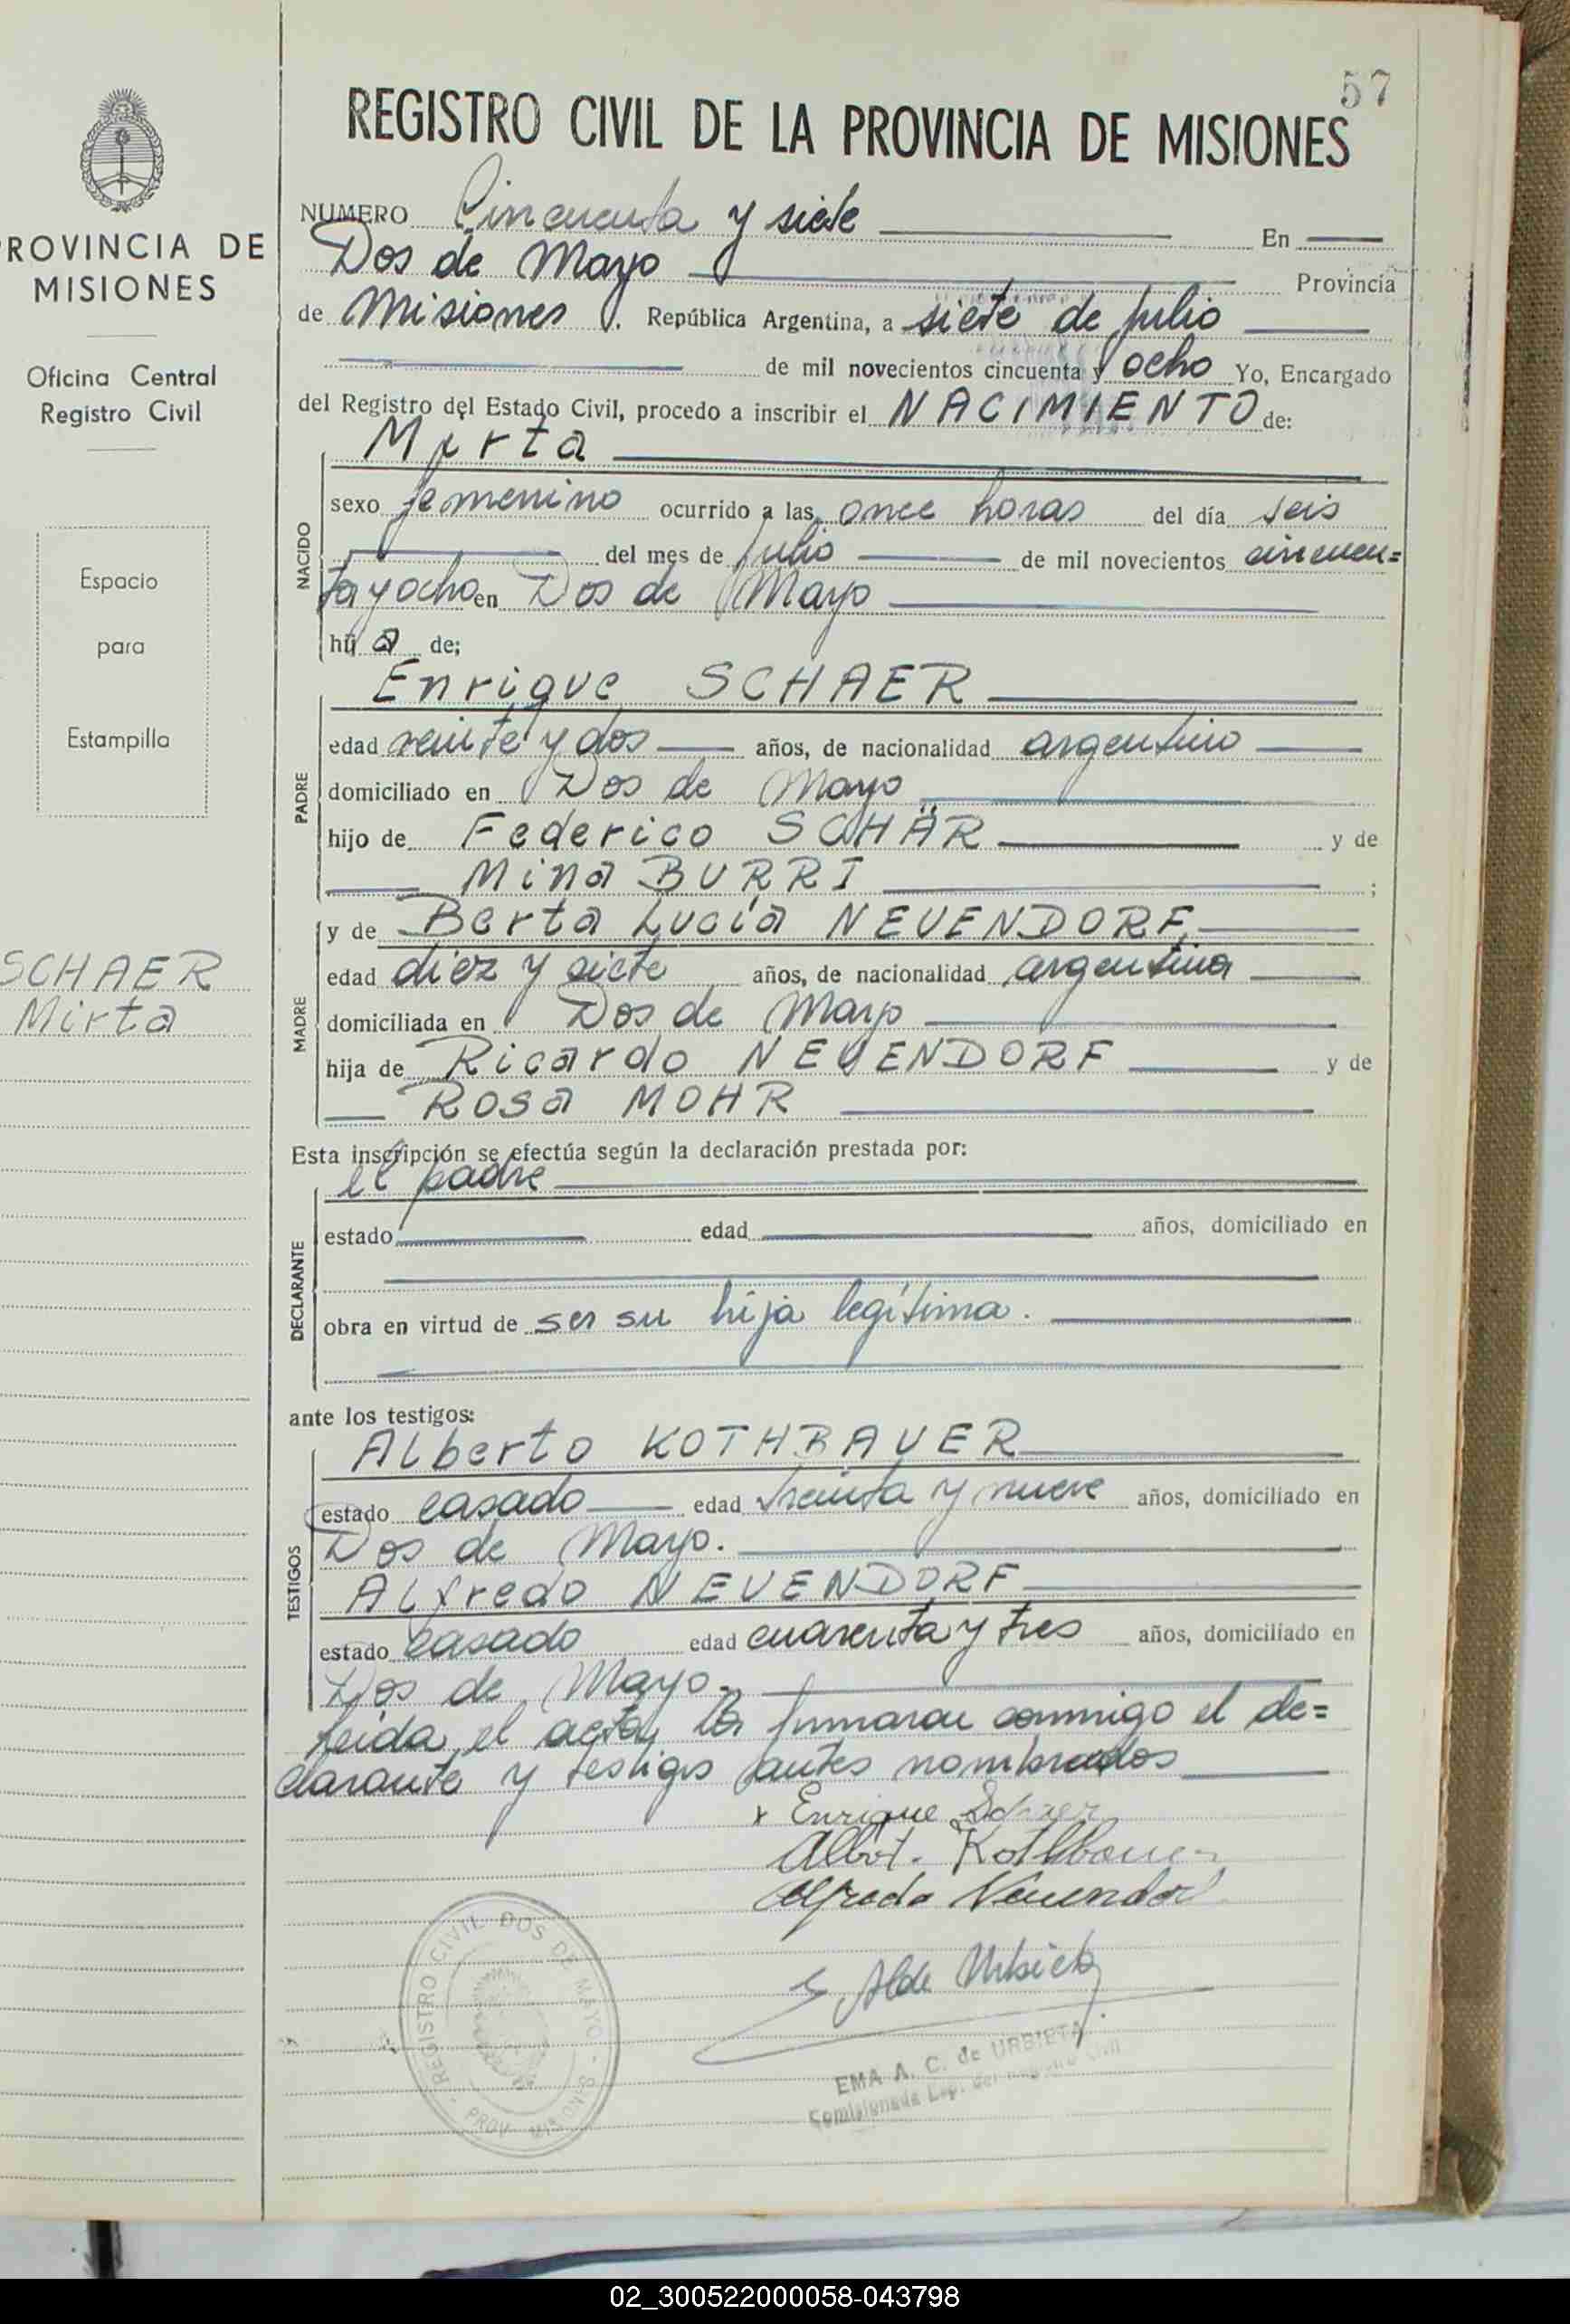 57
REGISTRO CIVIL DE LA PROVINCIA DE MISIONES
PROVINCIA DE
MISIONES
Oficina Central
Registro Civil
Espacio
para
Estampilla
SCHAER
Mirta
NUMERO Cincuenta y siete En
Dos de Mayo Provincia
de Misiones. República Argentina, a siete de julio
de mil novecientos cincuenta y ocho Yo, Encargado
del Registro del Estado Civil, procedo a inscribir el NACIMIENTO de:
Mirta
NACIDO
sexo femenino ocurrido a las once horas del día seis
del mes de julio de mil novecientos cincuen=
ta y ocho en Dos de Mayo
hija de;
PADRE
Enrique SCHAER
edad veinte y dos años, de nacionalidad argentino
domiciliado en Dos de Mayo
hijo de Federico SCHÄR y de
Mina BURRI ;
MADRE
y de Berta Lucía NEUENDORF
edad diez y siete años, de nacionalidad argentina
domiciliada en Dos de Mayo
hija de Ricardo NEUENDORF y de
Rosa MOHR
Esta inscripción se efectúa según la declaración prestada por:
DECLARANTE
el padre
estado edad años, domiciliado en
obra en virtud de ser su hija legítima.
ante los testigos:
TESTIGOS
Alberto KOTHBAUER
estado casado edad treinta y nueve años, domiciliado en
Dos de Mayo.
Alfredo NEUENDORF
estado casado edad cuarenta y tres años, domiciliado en
Dos de Mayo.
Leida el acta, la firmaron conmigo el de=
clarante y testigos antes nombrados
x Enrique Schaer
Albert. Kothbauer
Alfredo Neuendorf
E Alde Urbieta
EMA A. C. de URBIETA
Comisionada Esp. del Registro Civil
REGISTRO CIVIL DOS DE MAYO - PROV. MISIONES
02_300522000058-043798